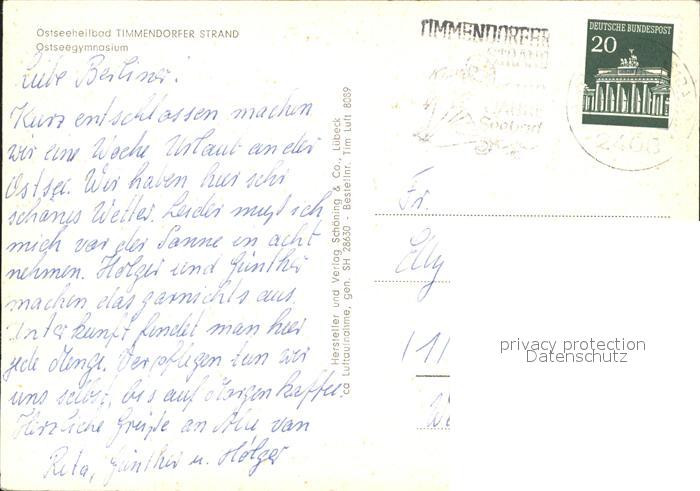 Ostseeheilbad TIMMENDORFER STRAND
Ostseegymnasium
Liebe Berliner!
Kurz entschlossen machen
wir eine Woche Urlaub an der
Ostsee. Wir haben hier sehr
schönes Wetter. Leider muß ich
mich vor der Sonne in acht
nehmen. Holger und Günther
machen das garnichts aus.
Unterkunft findet man hier
jede Menge. Verpflegen tun wir
uns selbst, bis auf Morgenkaffee.
Herzliche Grüße an Alle von
Rita, Günther u. Holger
Hersteller und Verlag Schöning & Co., Lübeck
ca Luftaufnahme, gen. SH 28630 - Bestellnr. Tim Luft 8089
TIMMENDORFER
STRAND
Seebad
DEUTSCHE BUNDESPOST
20
2408
Fr.
Elly
privacy protection
Datenschutz